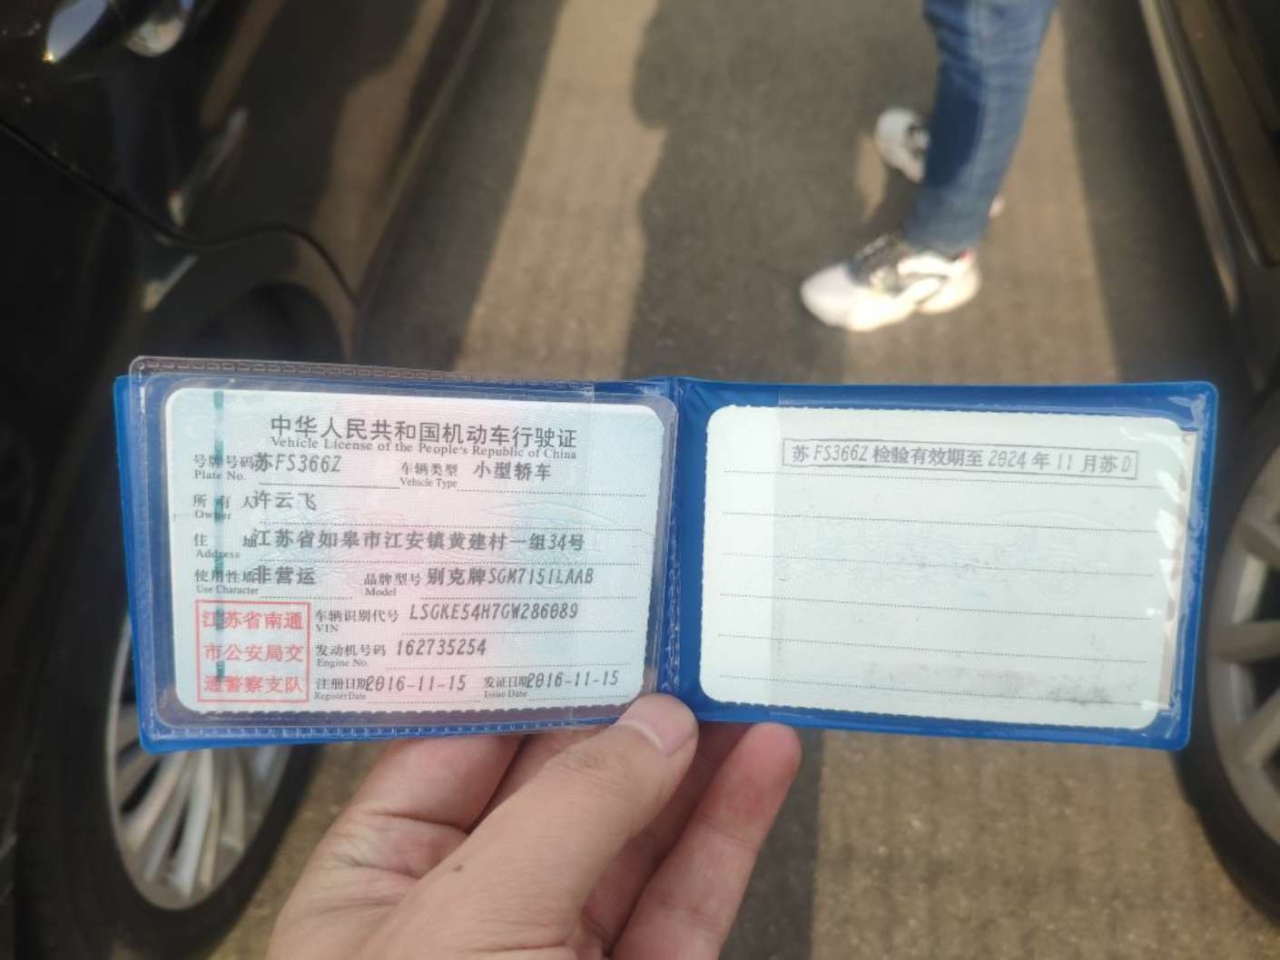 中华人民共和国机动车行驶证
Vehicle License of the People's Republic of China
号牌号码 苏FS366Z 车辆类型 小型轿车
Plate No. Vehicle Type
所有人 许云飞
Owner
住址 江苏省如皋市江安镇黄建村一组34号
Address
使用性质 非营运 品牌型号 别克牌SGM7151LAAB
Use Character Model
江苏省南通
市公安局交
通警察支队
车辆识别代号 LSGKE54H7GW286089
VIN
发动机号码 162735254
Engine No.
注册日期 2016-11-15 发证日期 2016-11-15
Register Date Issue Date
苏FS366Z检验有效期至2024年11月苏D